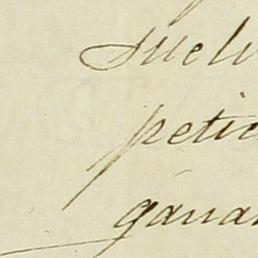 suelv
petic
ganan